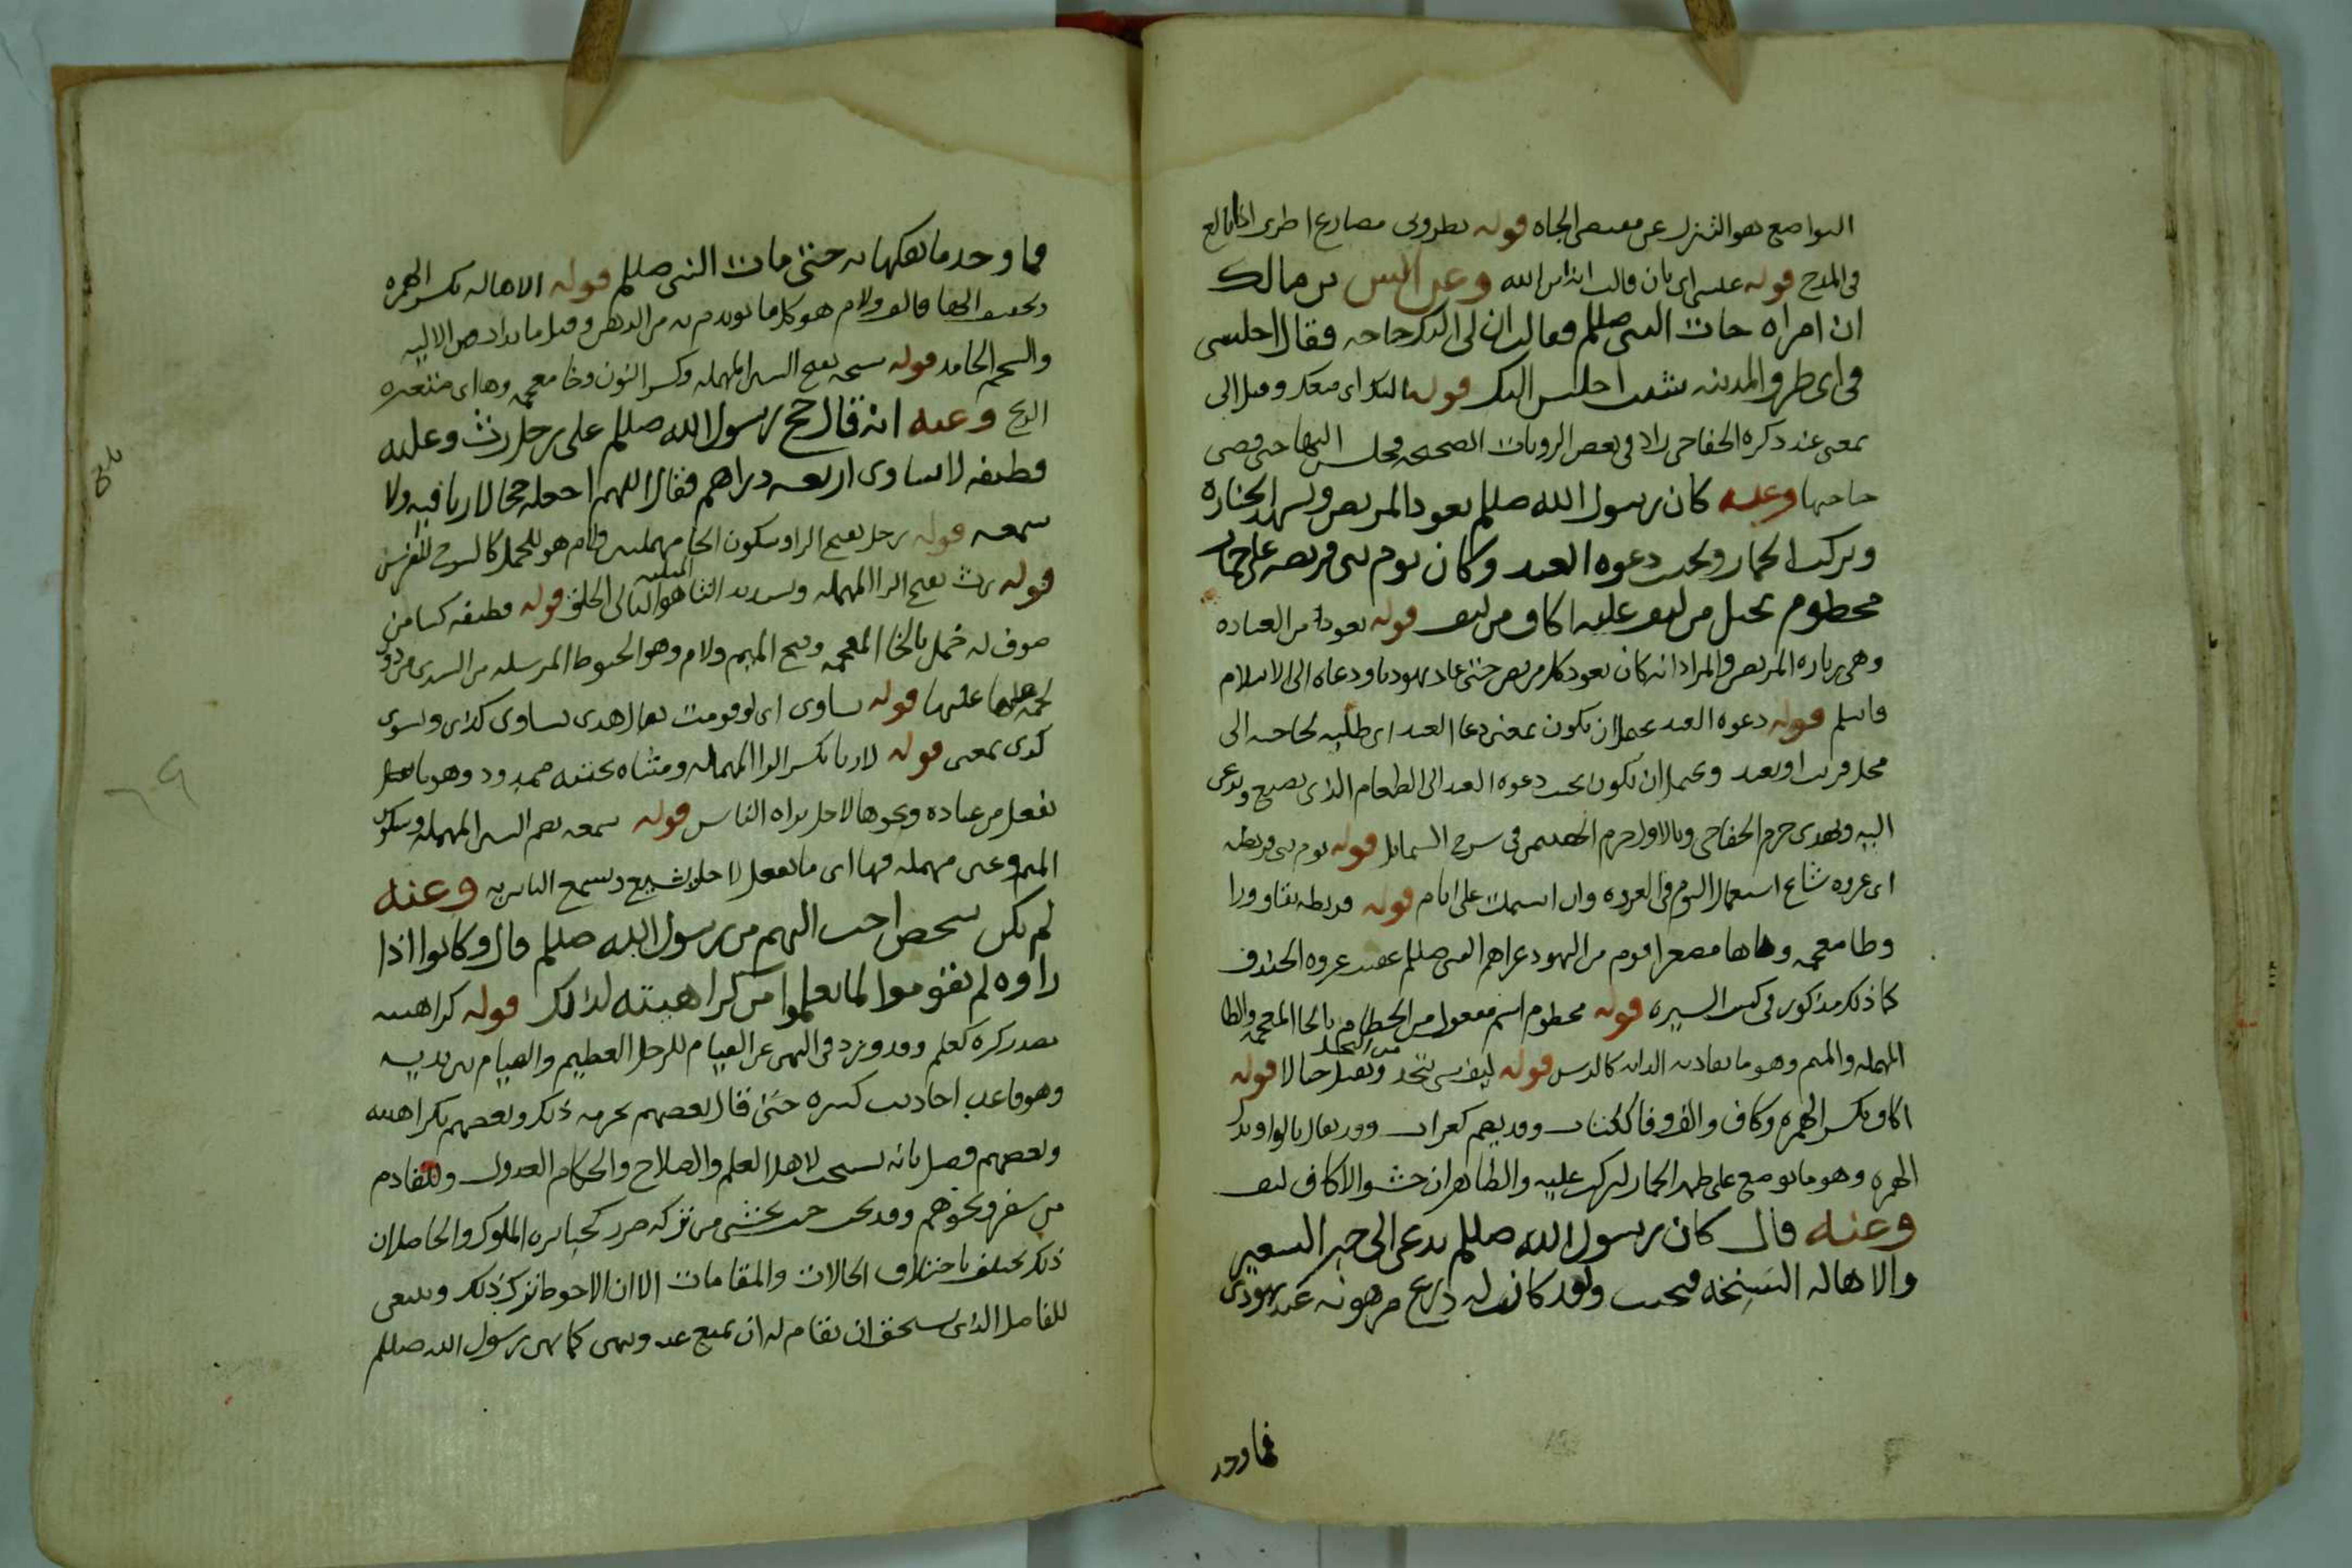 التواضع هو التنزل عن مقتضى الجاه قوله تطروني مضارع اطرى اذا بالغ
في المدح قوله عيسى اي بان قالت انه ابن الله وعن انس بن مالك
ان امراه جات النبي صللم فقالت ان لي اليك حاجه فقال اجلسي
في اي طريق المدينه شئت اجلس اليك قوله اليك اي معك وقيل الى
بمعنى عند ذكره الخفاجي زاد في بعض الروايات الصحيحه فجلس اليها حتى قضى
حاجتها وعنه كان رسول الله صللم يعود المريض ويشهد الجنازه
ويركب الحمار ويجيب دعوه العبد وكان يوم بني قريضه على حمار
مخطوم بحبل من ليف عليه اكاف من ليف قوله يعود من العياده
وهي زياره المريض والمراد انه كان يعود كل مريض حتى عاد يهوديا ودعاه الى الاسلام
فاسلم قوله دعوه العبد يحتمل ان يكون بمعنى دعا العبد اي طلبه لحاجته الى
محل قريب او بعيد ويحتمل ان يكون يجيب دعوه العبد الى الطعام الذي يصنع ويدعى
اليه ويهدى جزم الخفاجي وبالاول جزم الهيتمي في شرح الشمايل قوله يوم بني قريطه
اي غزوه شاع استعمال اليوم في الغزوه وان اشتملت على ايام قوله قريطه بقاف ورا
وطا معجمه وهاها مصغرا قوم من اليهود غزاهم النبي صللم عقيب غزوه الخندق
كما ذلك مذكور في كتب السيره قوله مخطوم اسم مفعول من الخطام بالخا المعجمه والطا
المهمله والميم وهو ما يقاد به الدابه كالرسن قوله ليف شي يتخذ من النخل ويفتل حبالا قوله
اكاف بكسر الهمزه وكاف والف وفا ككتاب وقد يضم كغراب وقد يقال بالواو بدل
الهمزه وهو ما يوضع على ظهر الحمار ليركب عليه والظاهر ان حشو الاكاف ليف
وعنه قال كان رسول الله صللم يدعى الى خبز الشعير
والاهاله السَنِخه فيجيب ولقد كانت له درع مرهونه عند يهودي
فما وجد
فما وجد ما يفكها به حتى مات النبي صللم قوله الاهاله بكسر الهمزه
وتخفيف الها فالف ولام هو كل ما يوتدم به من الدهن وقيل ما يذاب من الاليه
والشحم الجامد قوله سنخه بفتح السين المهمله وكسر النون وخا معجمه وها اي متغيره
الريح وعنه انه قال حج رسول الله صللم على رحل رث وعليه
قطيفه لا تساوي اربعه دراهم فقال اللهم اجعله حجا لا ريا فيه ولا
سمعه قوله رحل بفتح الرا وسكون الحا مهملتين ولام هو للجمل كالسرج للفرس
قوله رث بفتح الرا المهمله وتشديد الثا المثلثه هو البالي الخلق قوله قطيفه كسا من
صوف له خمل بالخا المعجمه وفتح الميم ولام وهو الخيوط المرسله من السدى من دون
لحمه عليها قوله تساوي اي لو قومت يقال هذي تساوي كذا اي وتسوي
كذى بمعنى قوله لا ريا بكسر الرا المهمله ومثناه تحتيه ممدود وهو ما
يفعل من عباده ونحوها لاجل يراه الناس قوله سمعه بضم السين المهمله وسكون
الميم وعين مهمله وها اي ما يفعل لاجل يشيع ويسمع الناس به وعنه
لم يكن شخص احب اليهم من رسول الله صللم قال وكانوا اذا
راوه لم يقوموا لما يعلموا من كراهيته لذلك قوله كراهيته
مصدر كره كعلم وقد ورد في النهي عن القيام للرجل العظيم والقيام بين يديه
وهو قاعد احاديث كثيره حتى قال بعضهم بحرمه ذلك وبعضهم بكراهيته
وبعضهم فصل بانه يستحب لاهل العلم والصلاح والحكام العدول وللقادم
من سفر ونحوهم وقد يجب حيث يخشى من تركه ضرر كجبابره الملوك والحاصل ان
ذلك يختلف باختلاف الحالات والمقامات الا ان الاحوط تركذلك وينبغي
للفاضل الذي يستحق ان يقام له ان يمنع عنه وينهى كما نهى رسول الله صللم